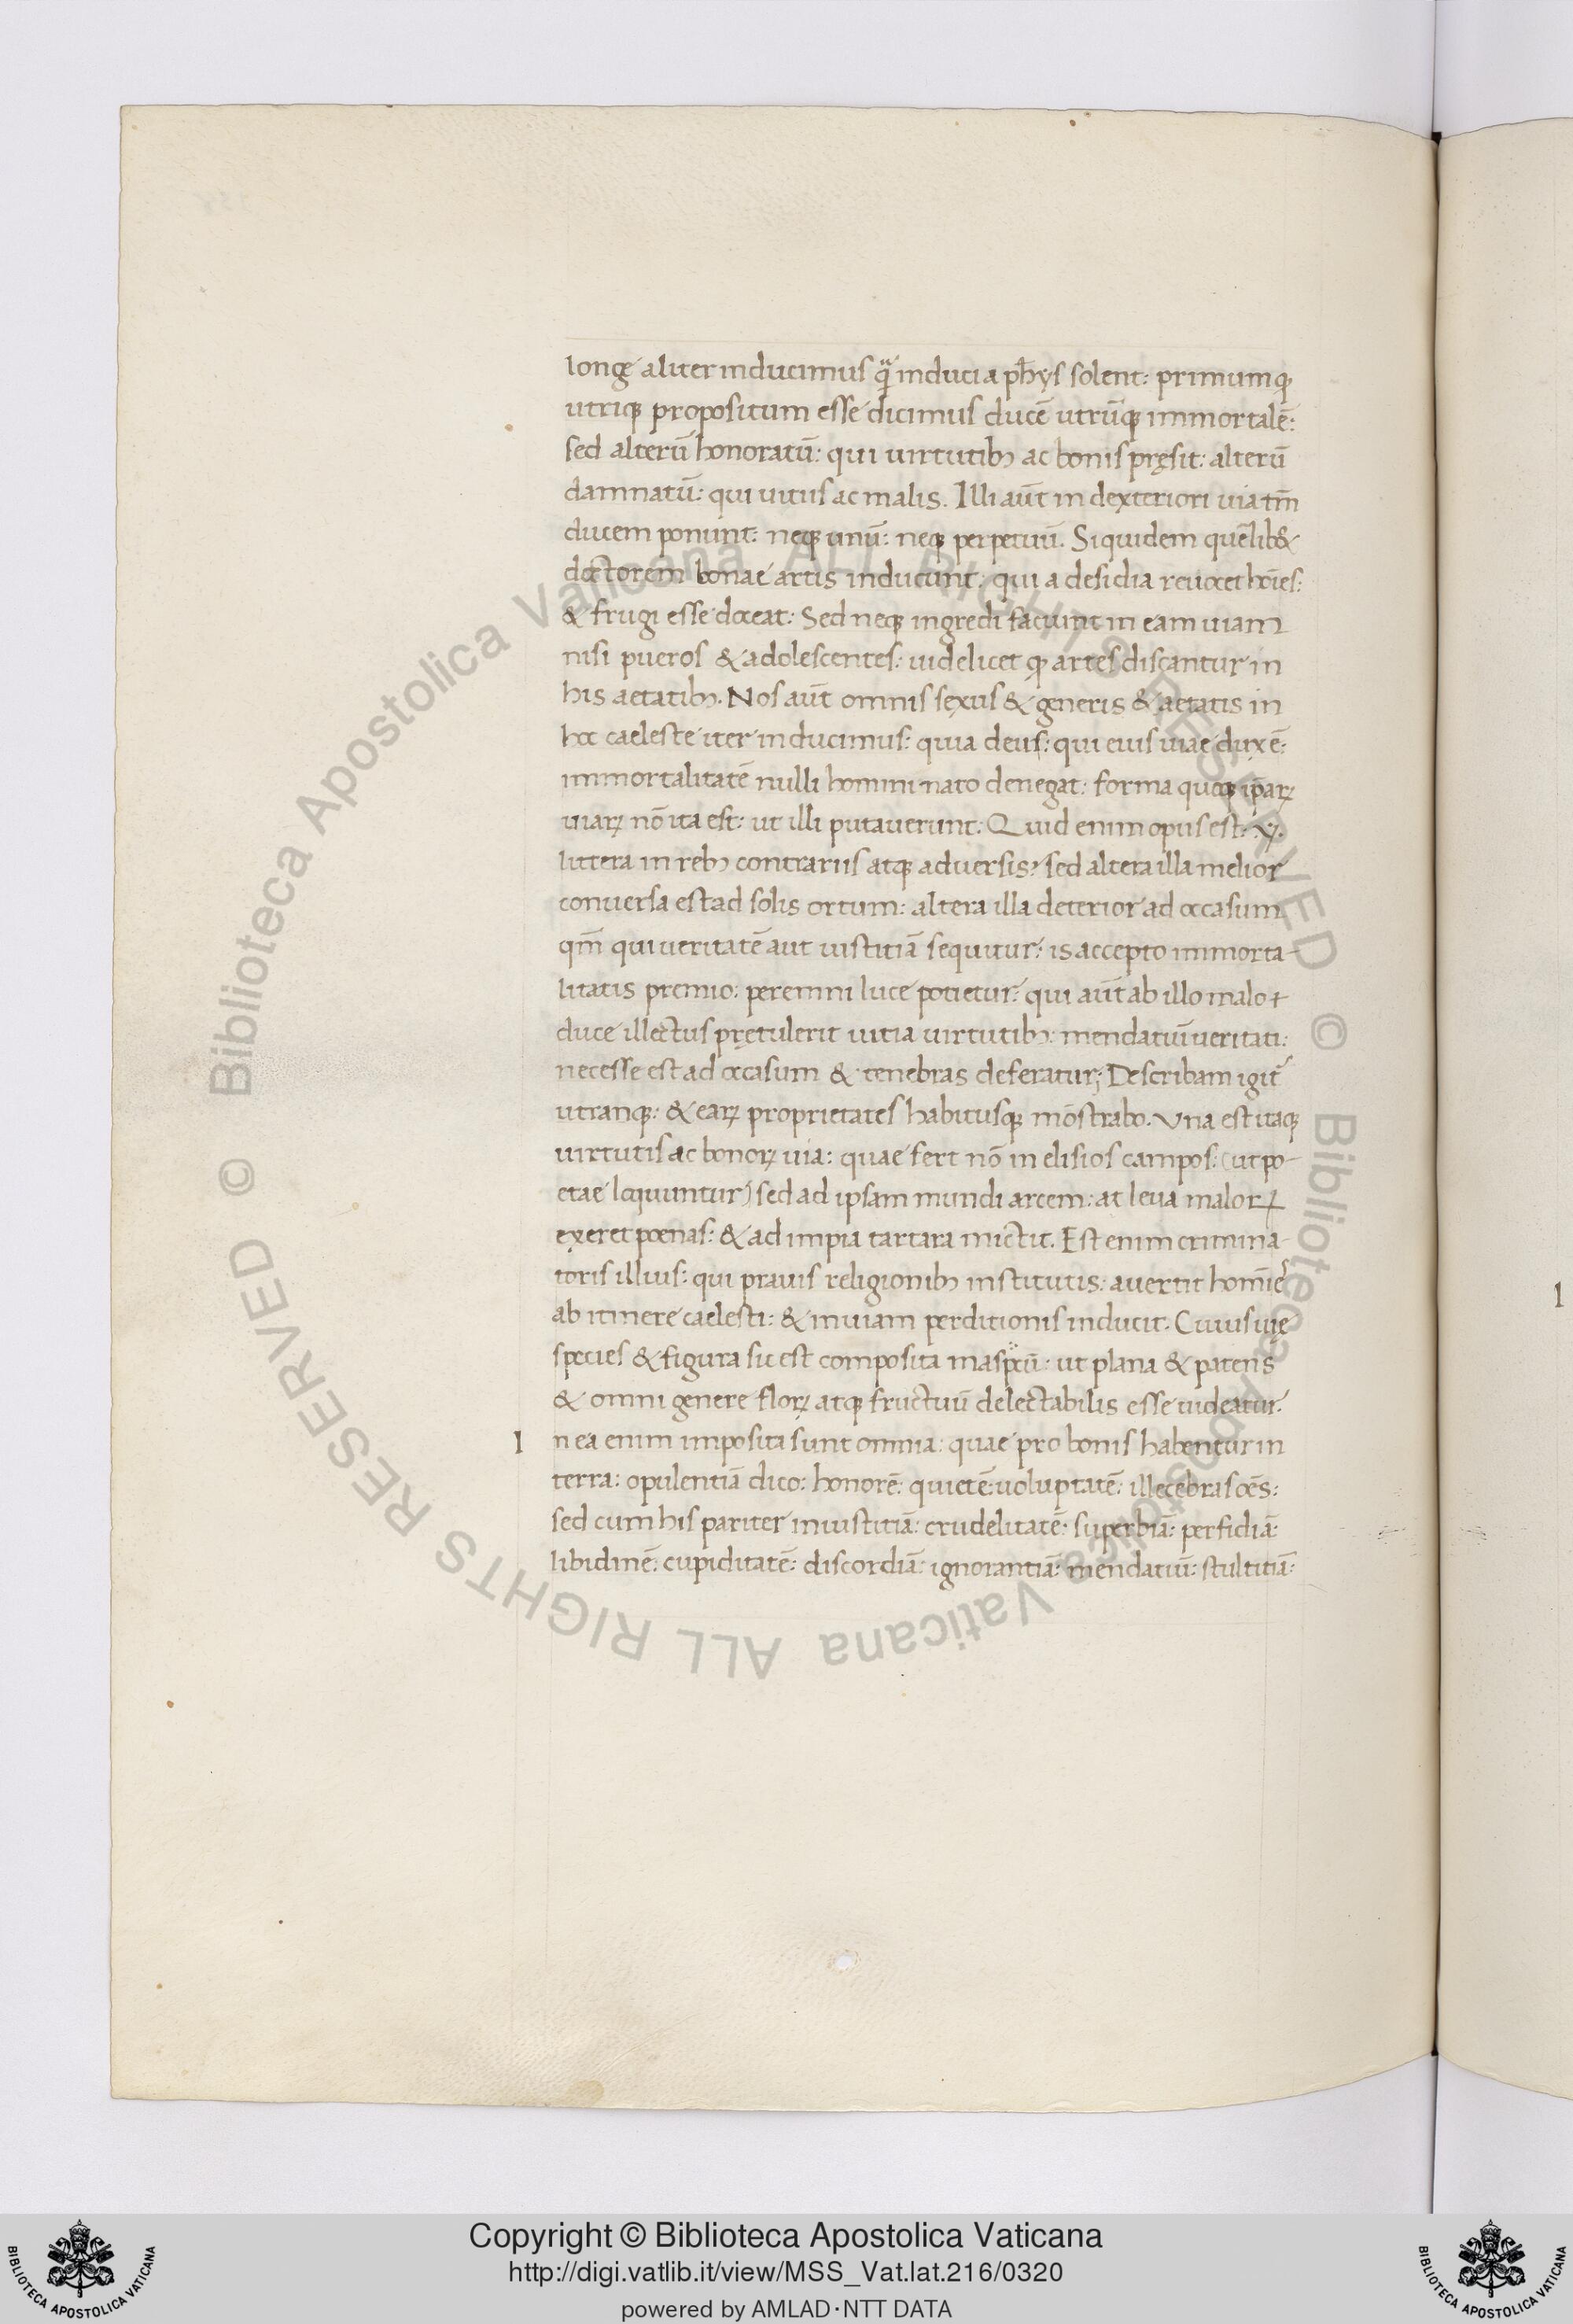 longe aliter inducimus qͣ̈ induci a ph̄ys solent: primumqꝫ
utriqꝫ propositum esse dicimus ducē utrūqꝫ immortalē:
sed alterū honoratū: qui uirtutibꝫ ac bonis pręsit: alterū
damnatū: qui uitiis ac malis. Illi aūt in dexteriori uia tm̄
ducem ponunt: neqꝫ unū: neqꝫ perpetuū. Siquidem quēlib&
doctorem bonae artis inducunt: qui a desidia reuocet hoīes:
& frugi esse doceat: Sed neqꝫ ingredi faciunt in eam uiam
nisi pueros & adolescentes: uidelicet qꝫ artes discantur in
his aetatibꝫ. Nos aūt omnis sexus & generis & aetatis in
hoc caeleste iter inducimus: quia deus: qui eius uiae dux ē:
immortalitatē nulli homini nato denegat: forma quoqꝫ ip̄aꝝ
uiaꝝ nō ita est: ut illi putauerunt: Quid enim opus est .y.
littera in rebꝫ contrariis atqꝫ aduersis? sed altera illa melior
conuersa est ad solis ortum: altera illa deterior ad occasum
qm̄ qui ueritatē aut iustitiā sequitur: is accepto immorta-
litatis premio: peremni luce potietur: qui aūt ab illo malo
duce illectus pretulerit uitia uirtutibꝫ: mendatiū ueritati:
necesse est ad occasum & tenebras deferatur; Describam igit̄
utranqꝫ: & eaꝝ proprietates habitusqꝫ mōstrabo. Vna est itaqꝫ
uirtutis ac bonoꝝ uia: quae fert nō in elisios campos: (ut po-
etae locuuntur) sed ad ipsam mundi arcem: at leua maloꝝ
exeret poenas: & ad impia tartara mictit. Est enim crimina-
toris illius: qui prauis religionibꝫ institutis: auertit homīes
ab itinere caelesti: & in uiam perditionis inducit. Cuius uię
species & figura sic est composita in aspectū: ut plana & patens
& omni genere floꝝ atqꝫ fructuū delectabilis esse uideatur.
I n ea enim imposita sunt omnia: quae pro bonis habentur in
terra: opulentiā dico: honorē: quietē: uoluptatē: illecebras oēs:
sed cum his pariter iniustitiā: crudelitatē: superbiā: perfidiā:
libidinē: cupiditatē: discordiā: ignorantiā: mendatiū: stultitiā:
I
Copyright © Biblioteca Apostolica Vaticana
http://digi.vatlib.it/view/MSS_Vat.lat.216/0320
powered by AMLAD·NTT DATA
BIBLIOTECA APOSTOLICA VATICANA
BIBLIOTECA APOSTOLICA VATICANA
© Biblioteca Apostolica Vaticana ALL RIGHTS RESERVED © Biblioteca Apostolica Vaticana ALL RIGHTS RESERVED